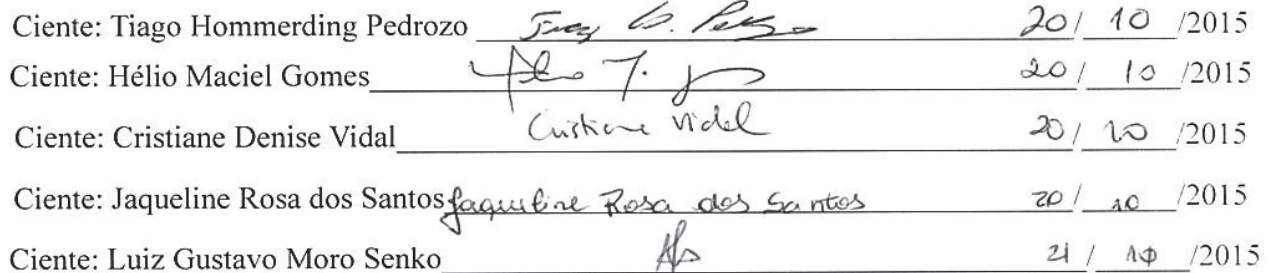 Ciente: Tiago Hommerding Pedrozo 20/ 10 /2015
Ciente: Hélio Maciel Gomes 20/ 10 /2015
Ciente: Cristiane Denise Vidal Cristiane Vidal 20/ 10 /2015
Ciente: Jaqueline Rosa dos Santos Jaqueline Rosa dos Santos 20/ 10 /2015
Ciente: Luiz Gustavo Moro Senko 21/ 10 /2015